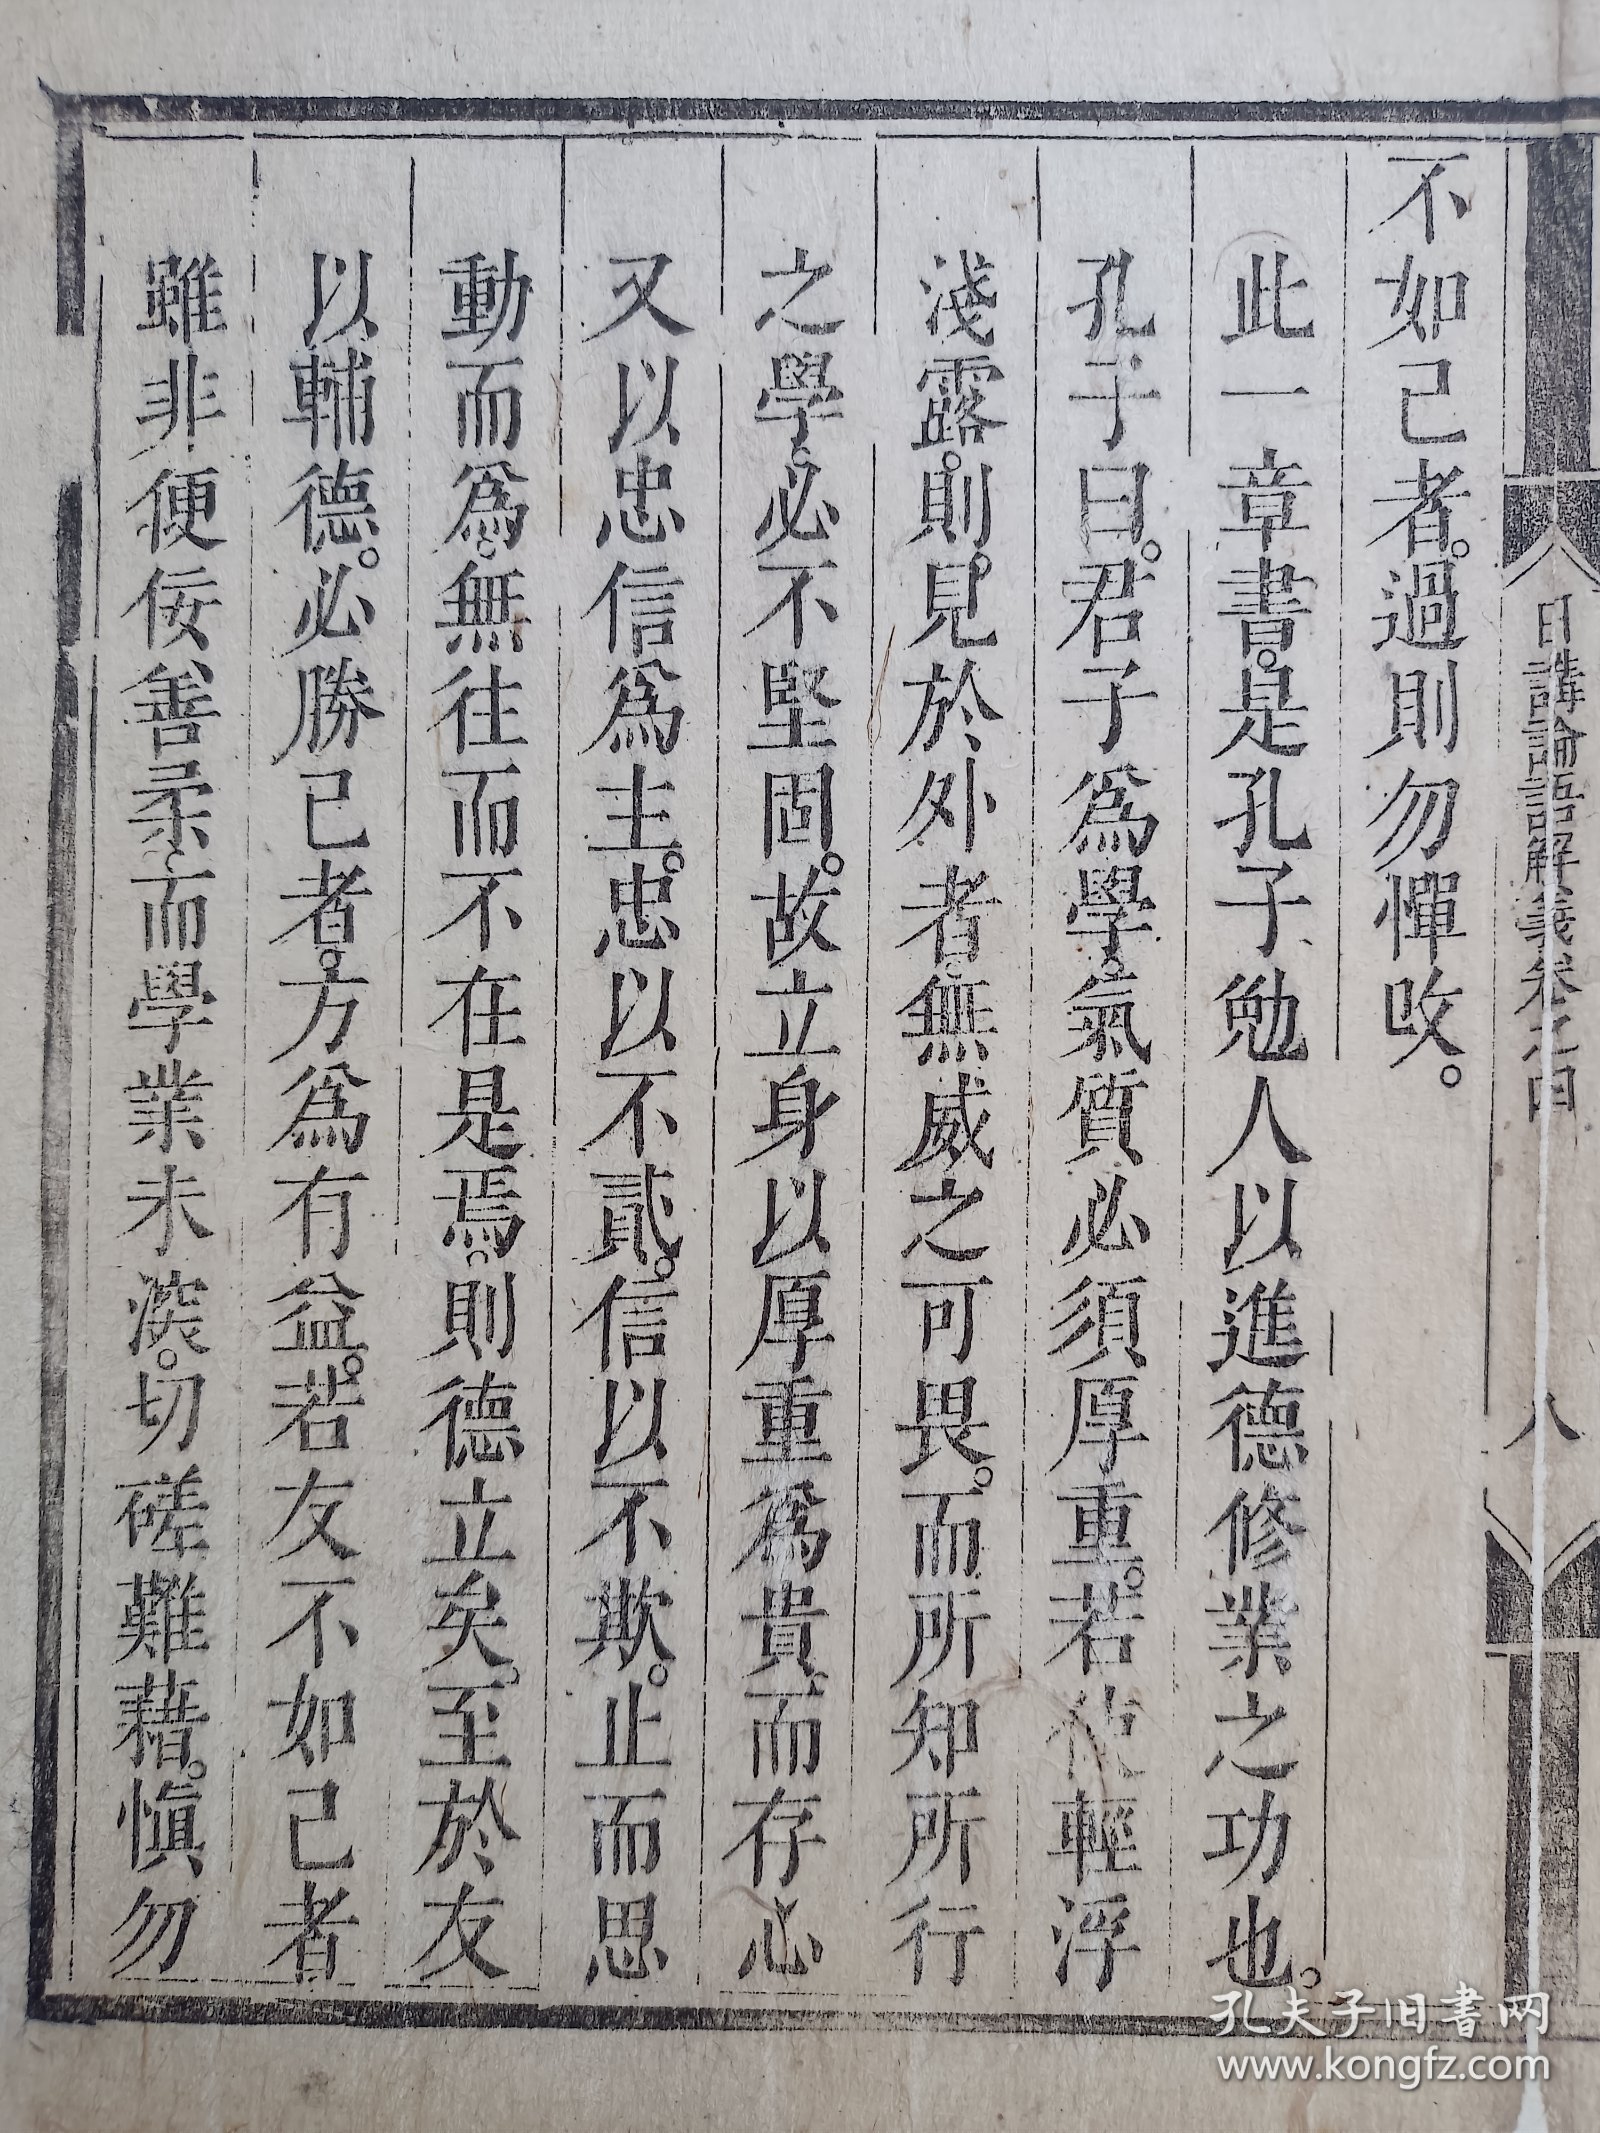 不如己者。過則勿憚改。
此一章書。是孔子勉人以進德修業之功也。
孔子曰。君子爲學。氣質必須厚重。若使輕浮
淺露。則見於外者。無威之可畏。而所知所行
之學。必不堅固。故立身以厚重爲貴。而存心
又以忠信爲主。忠以不貳。信以不欺。止而思
動而爲。無往而不在是焉。則德立矣。至於友
以輔德。必勝己者。方爲有益。若友不如己者
雖非便佞善柔。而學業未深。切磋難藉。愼勿
日講論語解義卷之四
八
孔夫子旧书网
www.kongfz.com